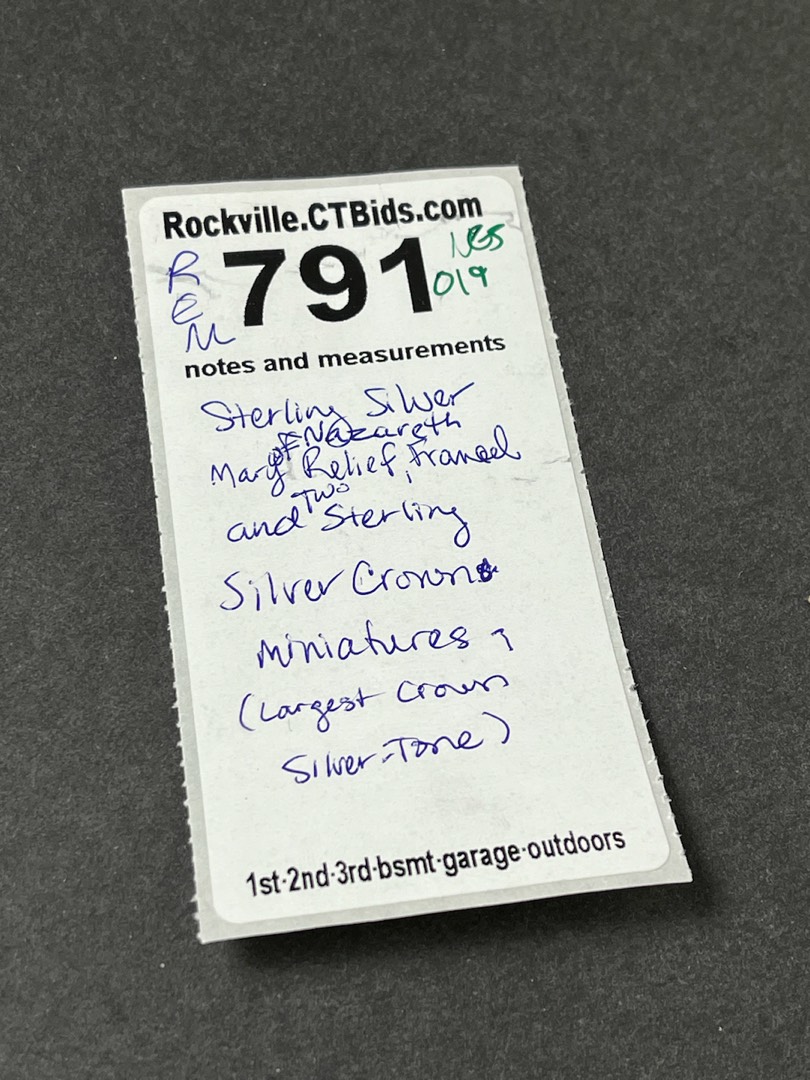 Rockville.CTBids.com
REM
791
NES
019
notes and measurements
Sterling Silver
of Nazareth
Mary Relief, Framed
Two
and Sterling
Silver Crown
miniatures,
(Largest Crown
Silver-Tone)
1st·2nd·3rd·bsmt·garage·outdoors